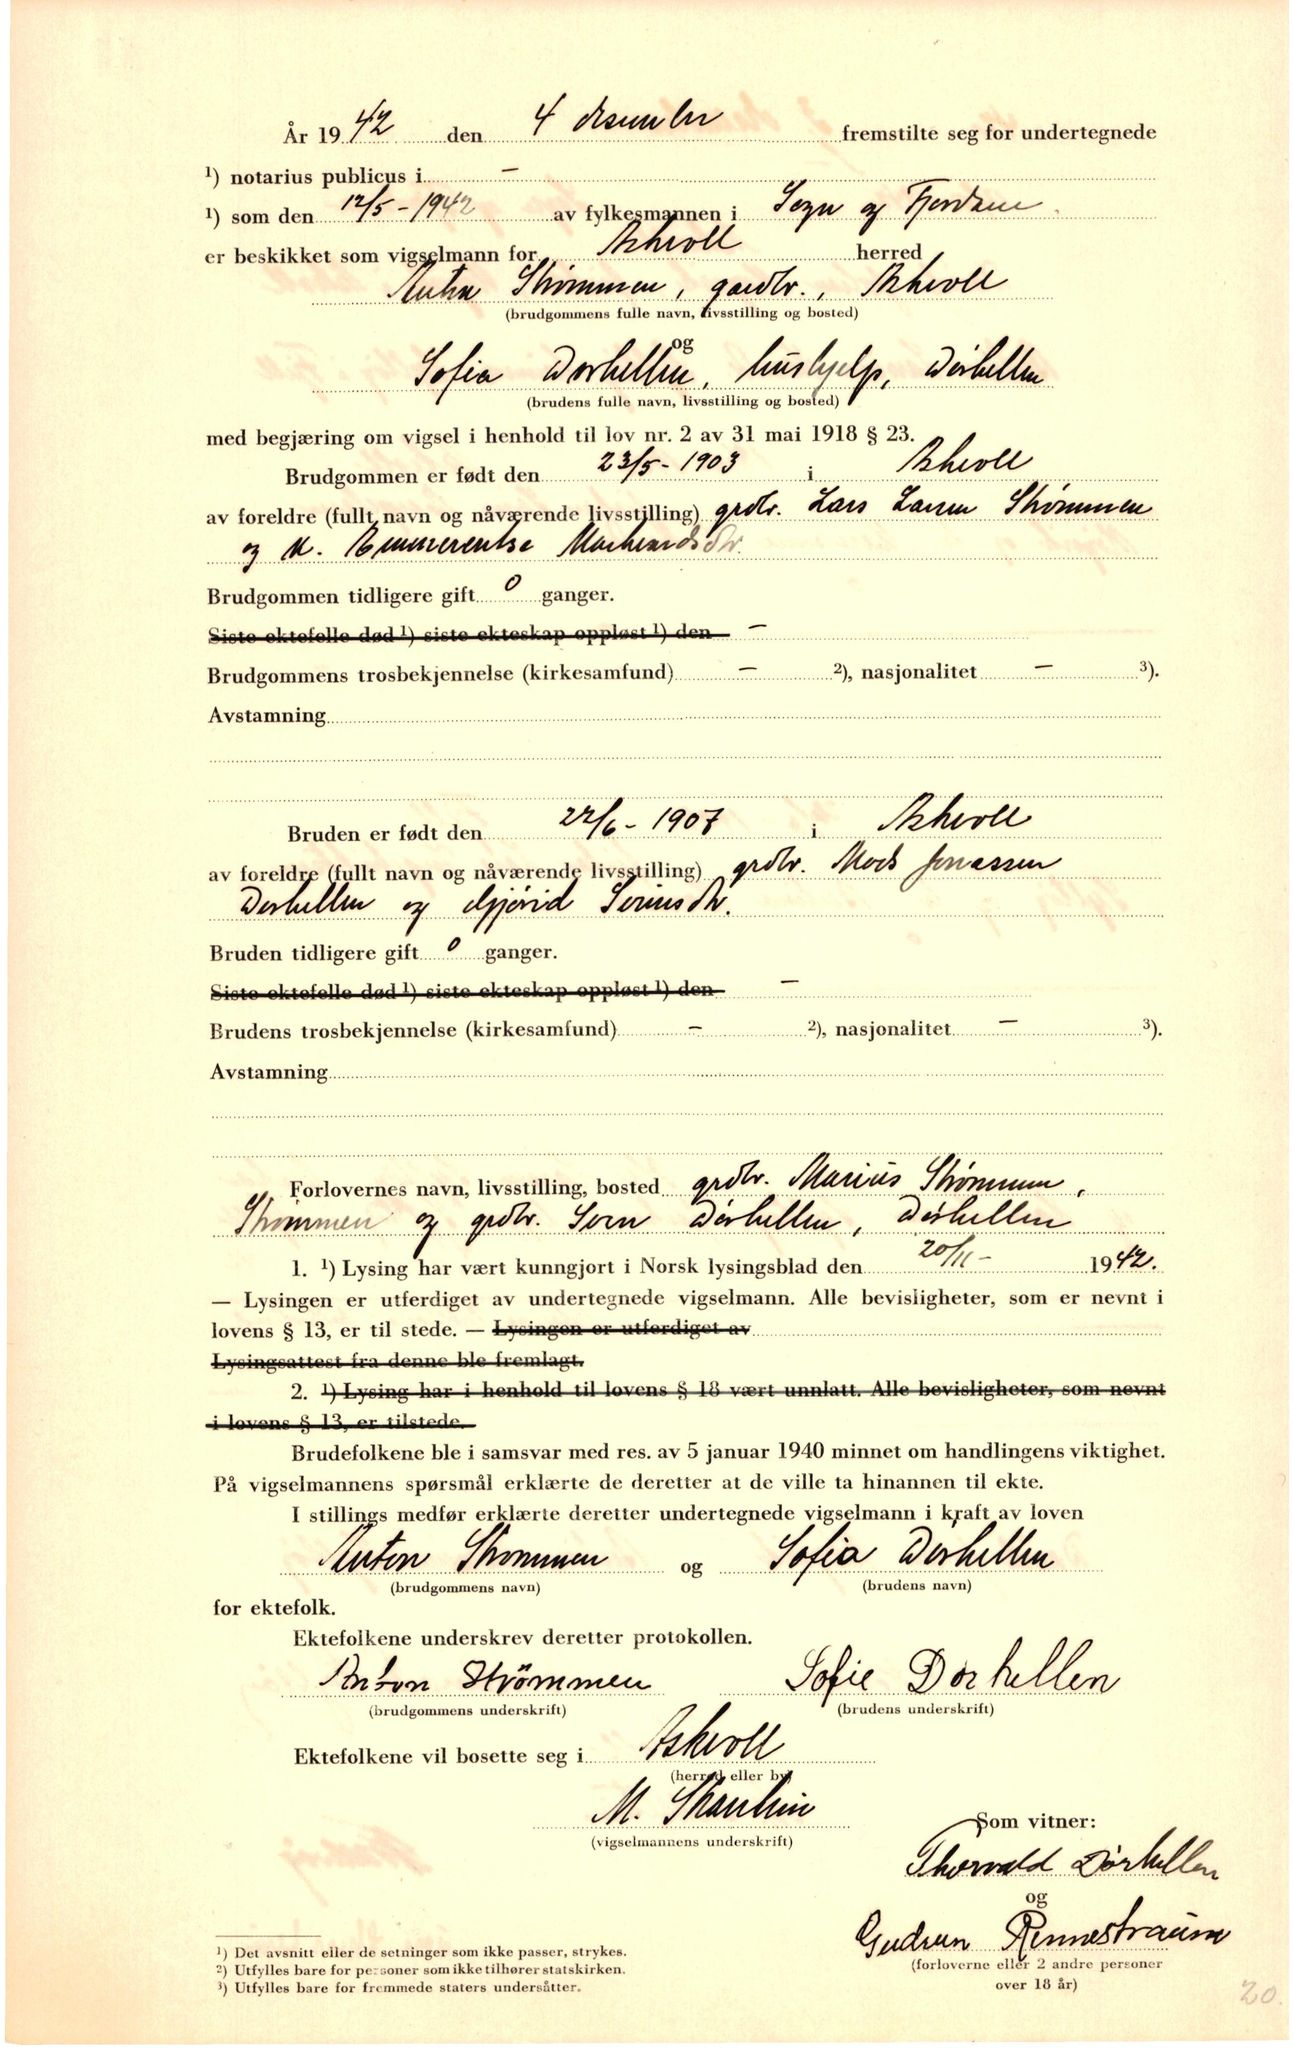 År 1942 den 4 desember fremstilte seg for undertegnede
¹) notarius publicus i —
¹) som den 12/5 - 1942 av fylkesmannen i Sogn og Fjordane.
er beskikket som vigselmann for Askvoll herred
Anton Strømmen, gardbr., Askvoll
(brudgommens fulle navn, livsstilling og bosted)
og
Sofia Dørhellen, hushjelp, Dørhellen
(brudens fulle navn, livsstilling og bosted)
med begjæring om vigsel i henhold til lov nr. 2 av 31 mai 1918 § 23.
Brudgommen er født den 23/5 - 1903 i Askvoll
av foreldre (fullt navn og nåværende livsstilling) grdbr. Lars Larsen Strømmen
og k. Emmerentse
Brudgommen tidligere gift 0 ganger.
Siste ektefelle død ¹) siste ekteskap oppløst ¹) den —
Brudgommens trosbekjennelse (kirkesamfund) — ²), nasjonalitet — ³).
Avstamning
Bruden er født den 22/6 - 1907 i Askvoll
av foreldre (fullt navn og nåværende livsstilling) grdbr. Mads Jonassen
Dørhellen og Gjørid
Bruden tidligere gift 0 ganger.
Siste ektefelle død ¹) siste ekteskap oppløst ¹) den —
Brudens trosbekjennelse (kirkesamfund) — ²), nasjonalitet — ³).
Avstamning
Forlovernes navn, livsstilling, bosted grdbr. Marius Strømmen,
Strømmen og grdbr. Søren Dørhellen, Dørhellen
1. ¹) Lysing har vært kunngjort i Norsk lysingsblad den 20/11 - 1942.
— Lysingen er utferdiget av undertegnede vigselmann. Alle bevisligheter, som er nevnt i
lovens § 13, er til stede. — Lysingen er utferdiget av
Lysingsattest fra denne ble fremlagt.
2. ¹) Lysing har i henhold til lovens § 18 vært unnlatt. Alle bevisligheter, som nevnt
i lovens § 13, er tilstede.
Brudefolkene ble i samsvar med res. av 5 januar 1940 minnet om handlingens viktighet.
På vigselmannens spørsmål erklærte de deretter at de ville ta hinannen til ekte.
I stillings medfør erklærte deretter undertegnede vigselmann i kraft av loven
Anton Strømmen og Sofia Dørhellen
(brudgommens navn) (brudens navn)
for ektefolk.
Ektefolkene underskrev deretter protokollen.
Anton Strømmen Sofie Dørhellen
(brudgommens underskrift) (brudens underskrift)
Ektefolkene vil bosette seg i Askvoll
(herred eller by)
M.
(vigselmannens underskrift)
Som vitner:
Thorvald Dørhellen
og
Gudrun Rennestraum
(forloverne eller 2 andre personer
over 18 år)
¹) Det avsnitt eller de setninger som ikke passer, strykes.
²) Utfylles bare for personer som ikke tilhører statskirken.
³) Utfylles bare for fremmede staters undersåtter.
20.